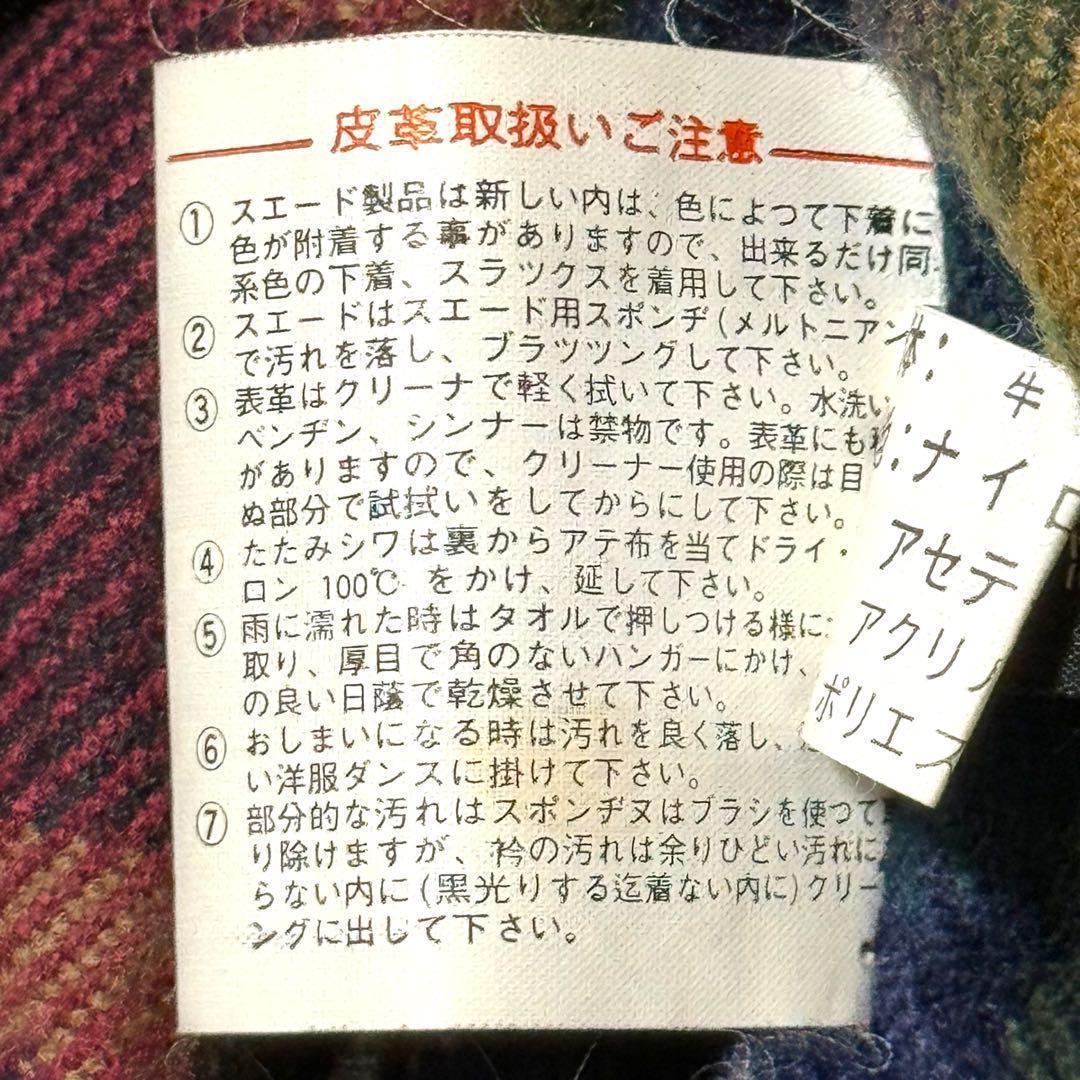 皮革取扱いご注意
① スエード製品は新しい内は、色によつて下着に
色が附着する事がありますので、出来るだけ同
系色の下着、スラックスを着用して下さい。
② スエードはスエード用スポンヂ(メルトニアン
で汚れを落し、ブラツツングして下さい。
③ 表革はクリーナで軽く拭いて下さい。水洗い
ベンヂン、シンナーは禁物です。表革にも
がありますので、クリーナー使用の際は目
ぬ部分で試拭いをしてからにして下さい。
④ たたみシワは裏からアテ布を当てドライ・
ロン 100℃ をかけ、延して下さい。
⑤ 雨に濡れた時はタオルで押しつける様に
取り、厚目で角のないハンガーにかけ、
の良い日蔭で乾燥させて下さい。
⑥ おしまいになる時は汚れを良く落し、
い洋服ダンスに掛けて下さい。
⑦ 部分的な汚れはスポンヂヌはブラシを使つて
り除けますが、衿の汚れは余りひどい汚れに
らない内に(黒光りする迄着ない内に)クリー
ングに出して下さい。
: 牛
:ナイロ
アセテ
アクリ
ポリエス